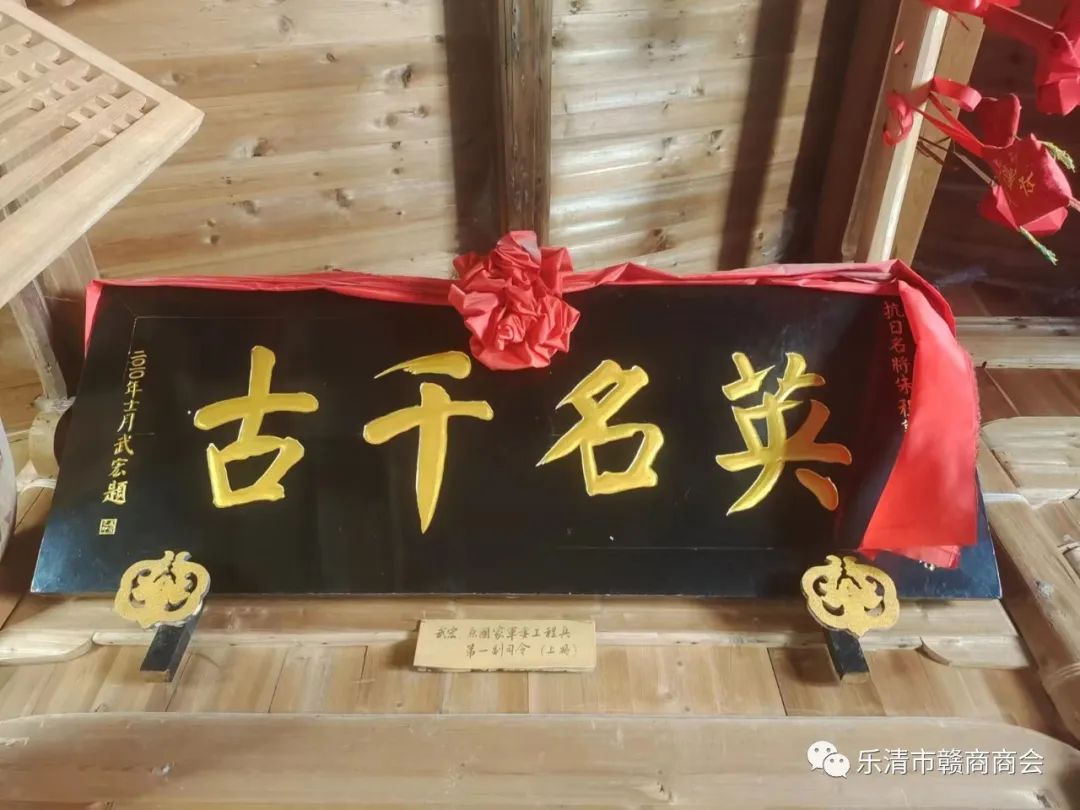 抗日名將朱
英名千古
二〇二〇年十一月武宏題
武宏 原國家軍委工程兵
第一副司令（上將）
乐清市赣商商会